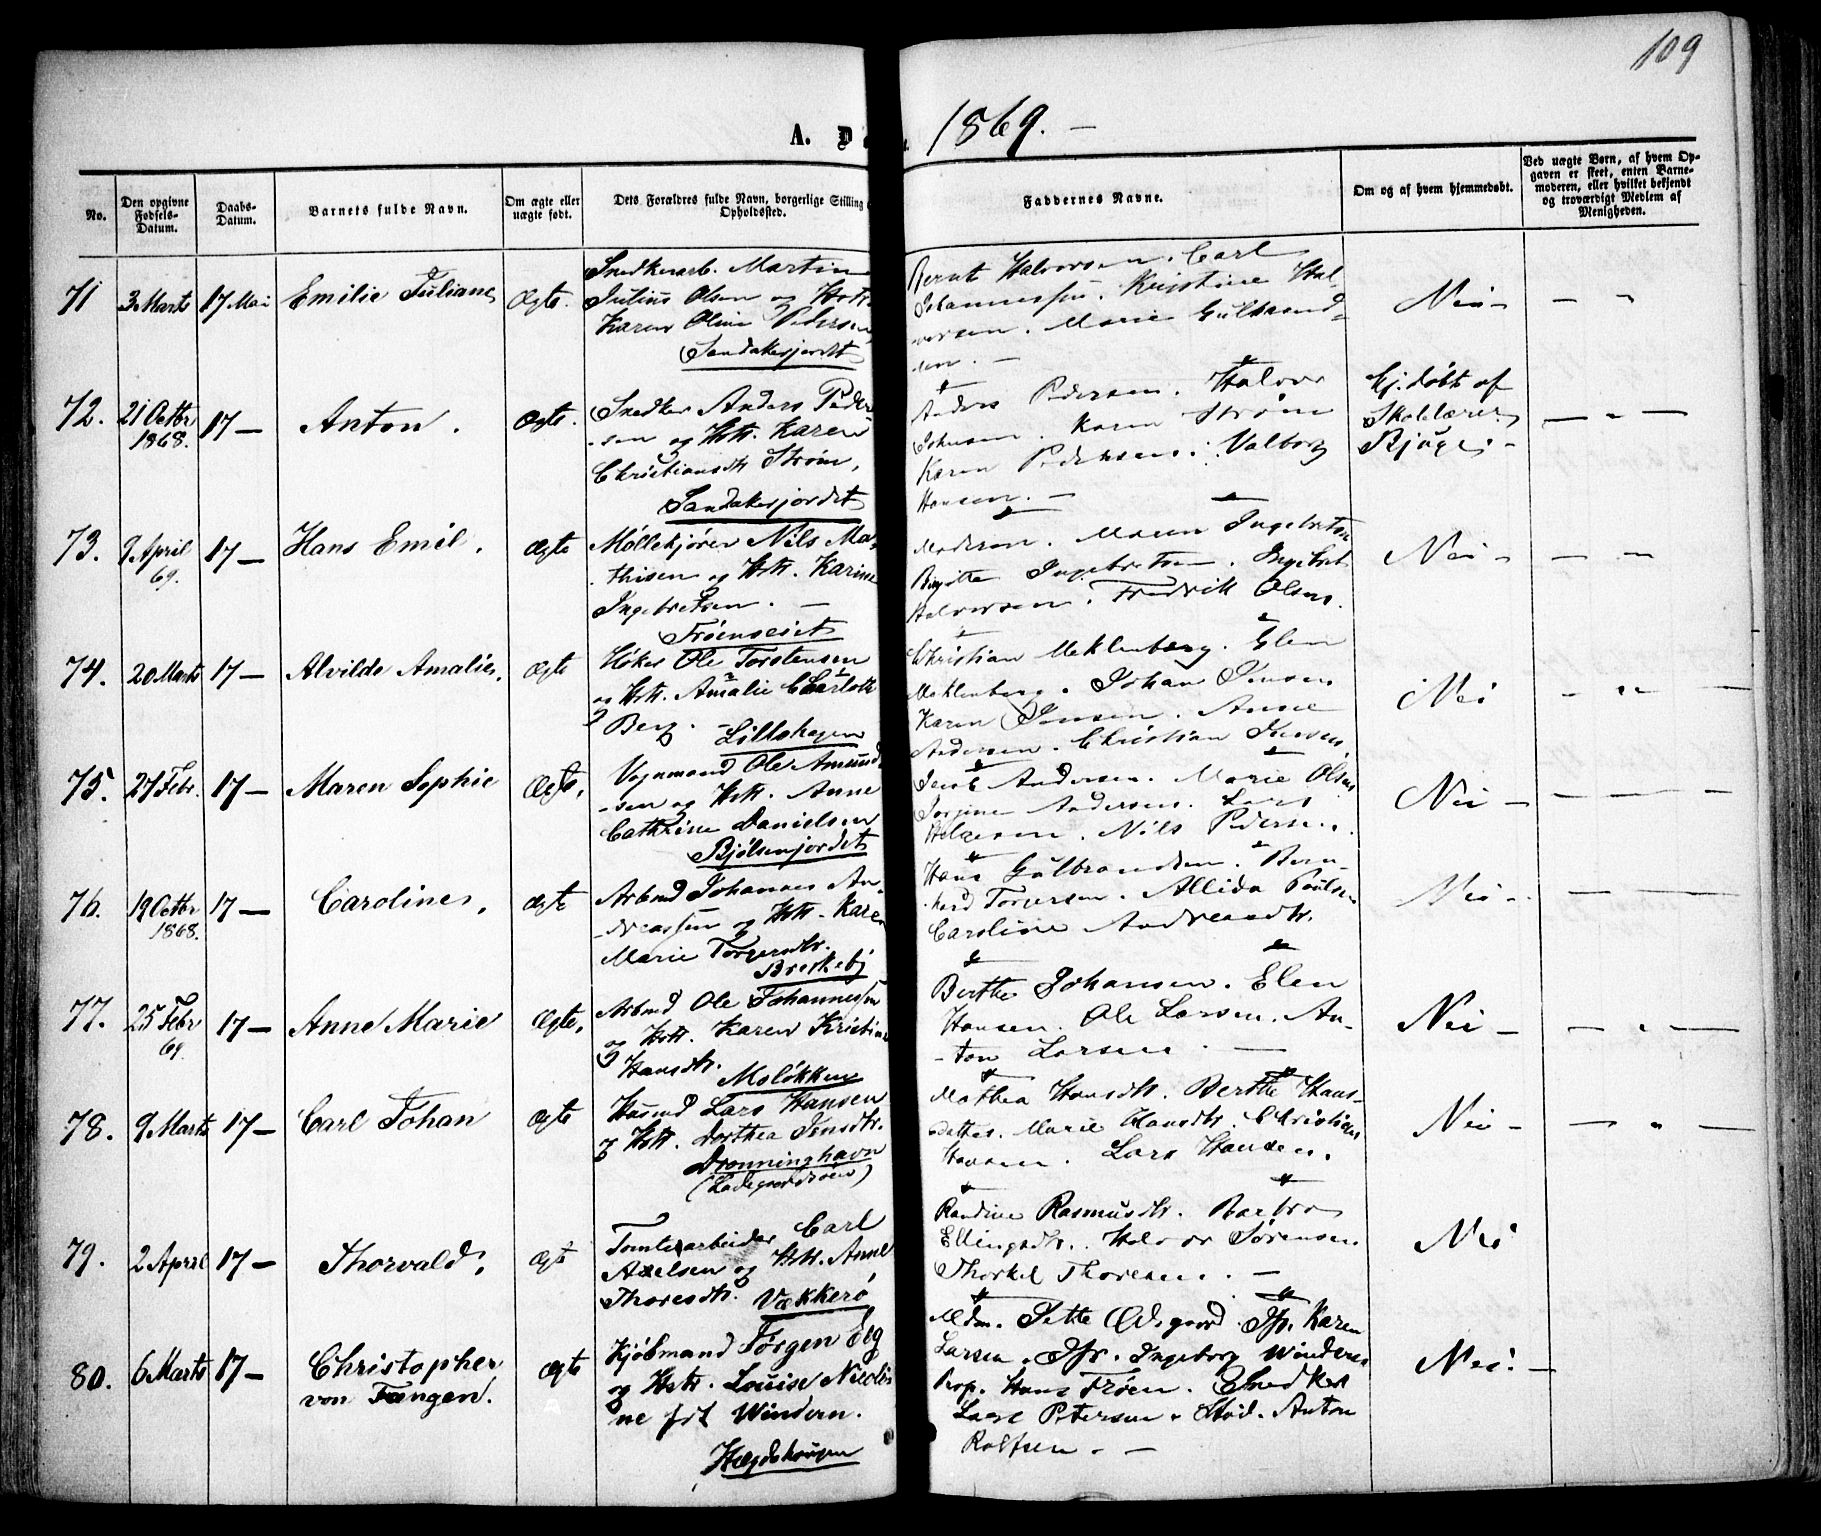 109
A. D
1869. —
No.
Den opgivne Fødsels-Datum.
Daabs-Datum.
Barnets fulde Navn.
Om ægte eller uægte født.
Dets Forældres fulde Navn, borgerlige Stilling
Opholdssted.
Faddernes Navne.
Om og af hvem hjemmedøbt.
Ved uægte Børn, af hvem Opgaven er skeet, enten Barnemoderen, eller hvilket bekjendt og troværdigt Medlem af Menigheden.
71 3 Marts 17 Mai Emilie Juliane Ægte.
Snedkerarb. Martin
Julius Olsen og Hstr.
Karen Oline Pedersen
Sandakerjordet
Bernt Halvorsen. Carl
Johannessen. Kristine Hal-
vorsen. Marie Gulbrand-
sen. —
Nei — — „
72. 21 Octbr 1868. 17 — Anton. Ægte.
Snedker Anders Peder-
sen og Hstr. Karen
Christiansdtr Strøm,
Sandakerjordet
Anders Pedersen. Halvor
Johnsen. Karen Strøm
Karen Pedersen. Valborg
Hansen. —
Hj. døbt af
Skolelærer
— „ —
73. 9 April 69. 17 — Hans Emil. Ægte
Møllekjører Nils Ma-
thisen og Hstr. Karine
Ingebretsen. —
Frøenseiet
Moderen. Maren Ingebretsen
Birgitte Ingebretsen. Ingebret
Halvorsen. Fredrik Olsen.
Nei — — —
74. 20 Marts 17 — Alvilde Amalie. Ægte
Høker Ole Torstensen
og Hstr. Amalie Charlotte
Berg. Lillehagen
Christian Meklenberg. Elen
Meklenberg. Johan Jensen
Karen Jensen. Anne
Andersen. Christian Iversen.
Nei — „ —
75. 27 Febr. 17 — Maren Sophie Ægte.
Vognmand Ole Amund-
sen og Hstr. Anne
Cathrine Danielsen
Bjølsenjordet
Jacob Andersen. Marie Olsen
Jorgine Andersen. Lars
Helgesen. Nils Pedersen.
Nei — — — —
76. 19 Octbr 1868. 17 — Caroline. Ægte
Arbmd Johannes An-
dreassen og Hstr. Karen
Marie Torgersdtr.
Briskeby
Hans Gulbrandsen. Bern-
hard Torgersen. Allida Poulsen
Caroline Andreasdtr.
Nei — — —
77. 25 Febr 69. 17 — Anne Marie Ægte.
Arbmd Ole Johannessen
og Hstr. Karen Kristine
Hansdtr. Maløkken
Berthe Johansen. Elen
Hansen. Ole Larsen. An-
ton Larsen. —
Nei — — „ —
78. 9 Marts 17 — Carl Johan Ægte
Husmd Lars Hansen
og Hstr. Dorthea Jensdtr.
Dronninghavn
(Ladegaardsøen)
Mathea Hansdtr. Berthe Hans-
datter. Marie Hansdtr. Christian
Hansen. Lars Hansen.
Nei — — „ —
79. 2 April 17 — Thorvald. Ægte
Tomtearbeider Carl
Axelsen og Hstr. Anne
Thoresdtr. Vækkerø
Randine Rasmusdtr. Barbro
Ellingsdtr. Halvor Sørensen
Thorkel Thoresen. —
Nei
80. 6 Marts 17 — Christopher
von Tangen. Ægte
Kjøbmand Jørgen Elg
og Hstr. Louise Nicoli-
ne født Windern.
Hægdehaugen
Mdm. Jette Odsgaard. Jfr. Karen
Larsen. Jfr. Ingeborg Windern
Prop. Hans Frøen. Snedker
Lars Petersen. Stud. Anton
Rolfsen. —
Nei. —